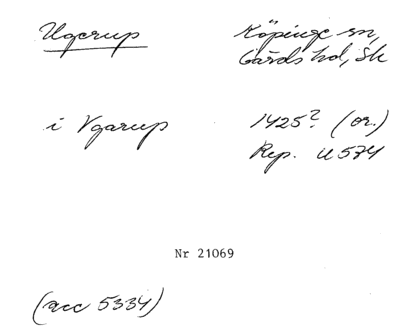 Ugerup Köpinge sn,
Gärds hd, Sk
i Vgarup 1425? (or.)
Rep. U 574
Nr 21069
(acc 5334)